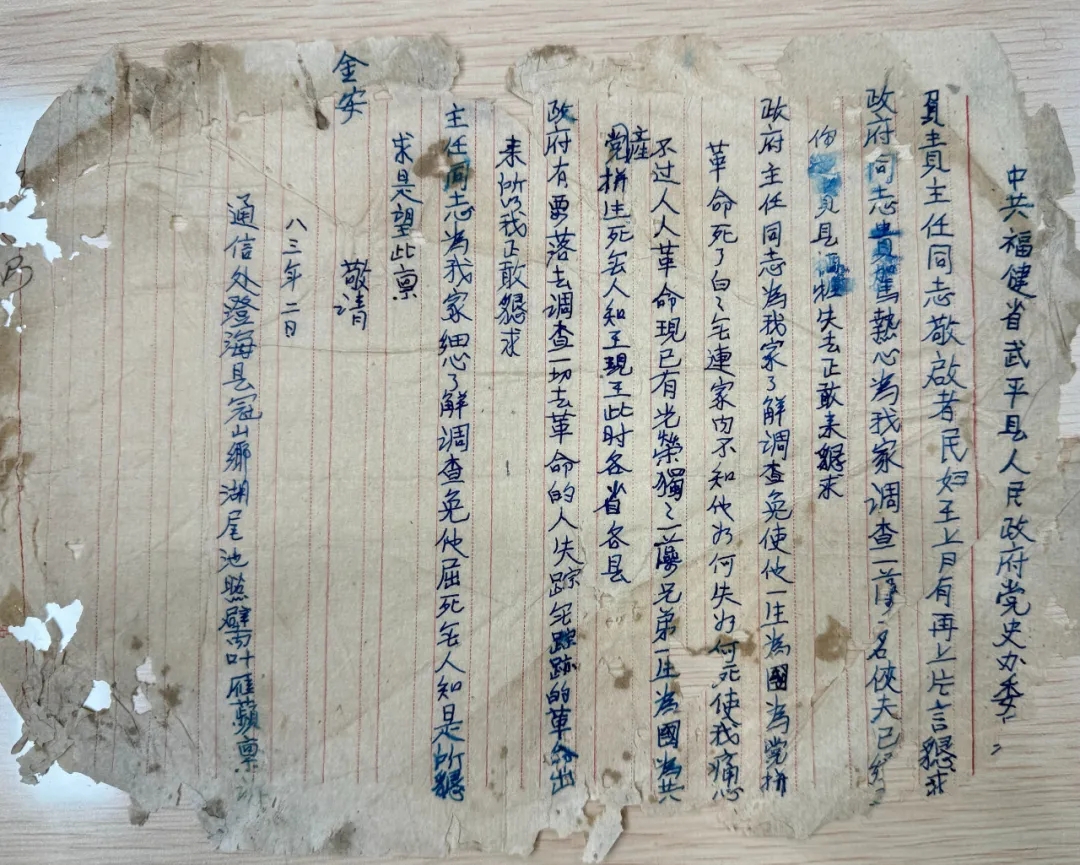 中共福建省武平县人民政府党史办委
負責主任同志敬啟者民妇至上月有再上片言懇求
政府同志費駕熱心為我家调查一萍名俠夫已
份貴县失去正敢来懇求
政府主任同志為我家了解调查免使他一生為國為党拼
革命死了白〻無連家内不知他為何失為何死使我痛心
不过人人革命現已有光荣獨〻一萍兄弟一生為國為共
產党拼生死無人知至現至此时各省各县
政府有要落去调查一切去革命的人失踪無踪跡的革命出
来所以我正敢懇求
主任同志為我家细心了解调查免他屈死無人知是所懇
求是望此禀
敬请
金安
八三年二日
通信处澄海县冠山鄉湖尾池照壁南叶雁蘋禀